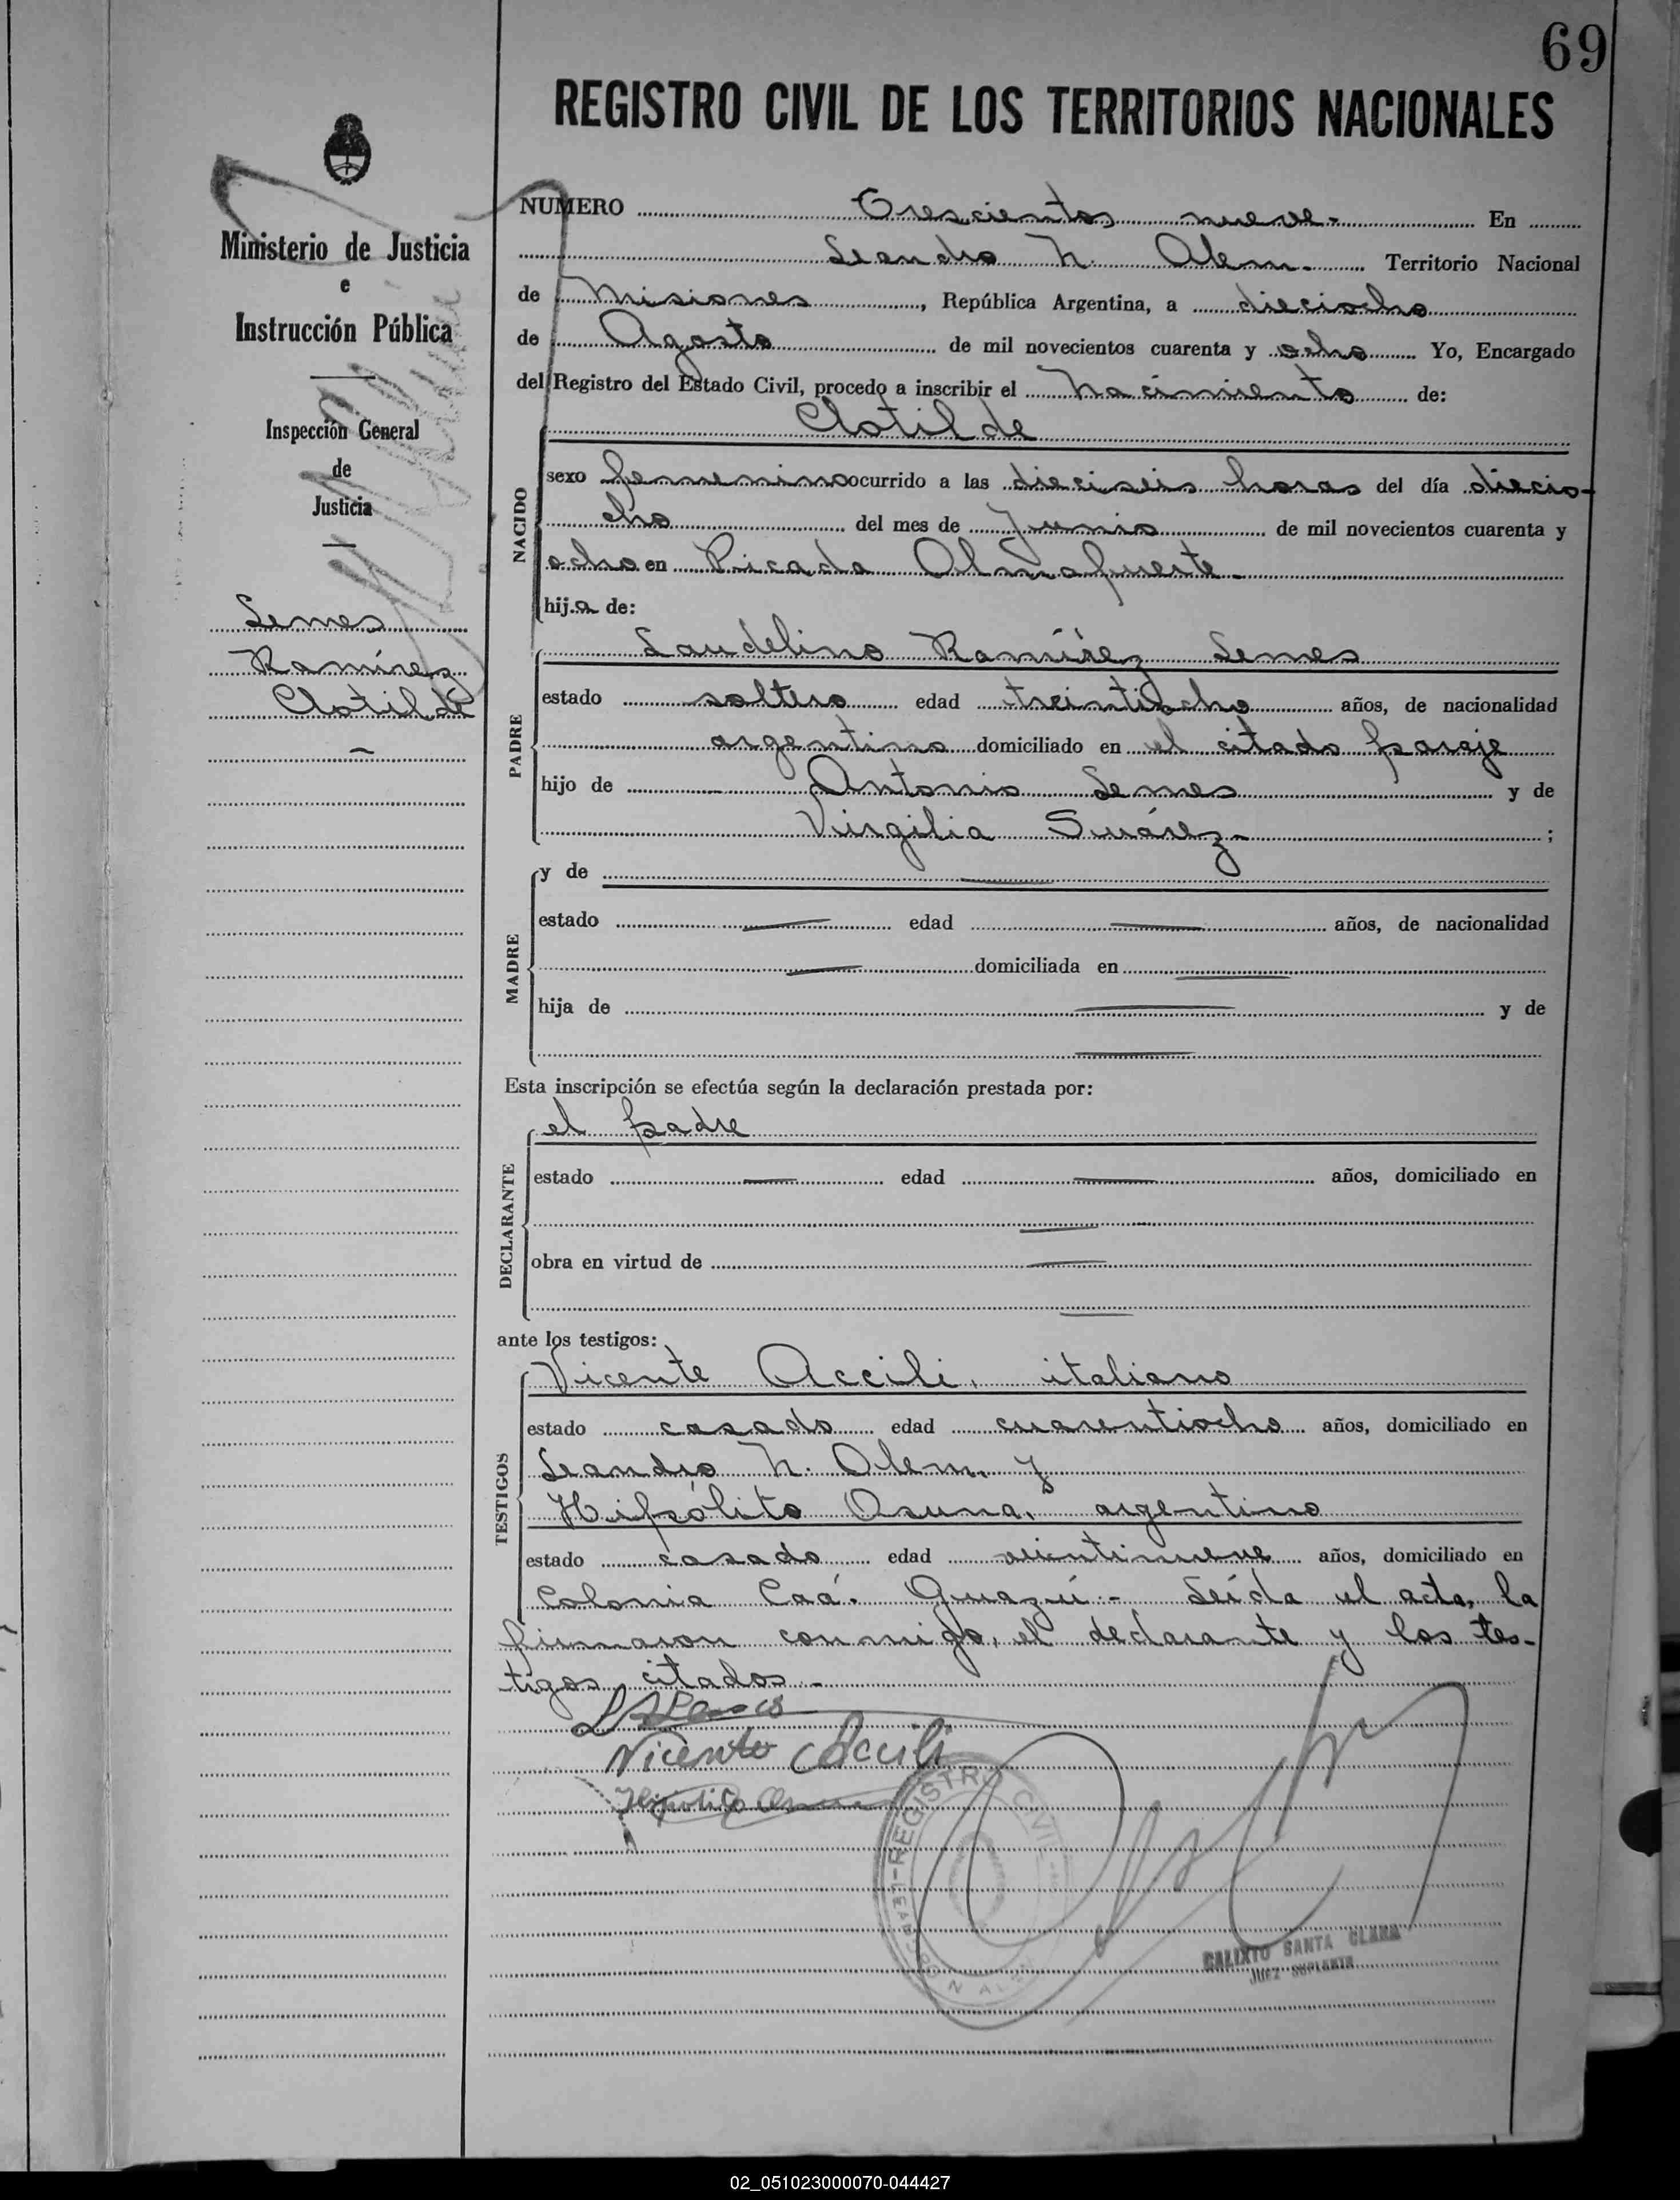 69
REGISTRO CIVIL DE LOS TERRITORIOS NACIONALES
Ministerio de Justicia
e
Instrucción Pública
Inspección General
de
Justicia
Lemes
Ramírez
Clotilde
NUMERO Trescientos nueve.- En
Leandro N. Alem. Territorio Nacional
de Misiones, República Argentina, a dieciocho
de Agosto de mil novecientos cuarenta y ocho Yo, Encargado
del Registro del Estado Civil, procedo a inscribir el nacimiento de:
Clotilde
NACIDO
sexo femenino ocurrido a las dieciseis horas del día diecio-
cho del mes de Junio de mil novecientos cuarenta y
ocho en Picada Almafuerte.-
hija de:
PADRE
Laudelino Ramírez Lemes
estado soltero edad treintiocho años, de nacionalidad
argentino domiciliado en el citado paraje
hijo de Antonio Lemes y de
Virgilia Suárez.- ;
MADRE
y de
estado edad años, de nacionalidad
domiciliada en
hija de y de
Esta inscripción se efectúa según la declaración prestada por:
DECLARANTE
el padre
estado edad años, domiciliado en
obra en virtud de
ante los testigos:
TESTIGOS
Vicente Accili, italiano
estado casado edad cuarentiocho años, domiciliado en
Leandro N. Alem, y
Hipólito Osuna, argentino
estado casado edad veintinueve años, domiciliado en
Colonia Caá-Guazú.- Leída el acta, la
firmaron conmigo, el declarante y los tes-
tigos citados.-
Vicente Accili
Hipolito Osuna
REGISTRO CIVIL
CALIXTO SANTA CLARA
JUEZ SUPLENTE
02_051023000070-044427